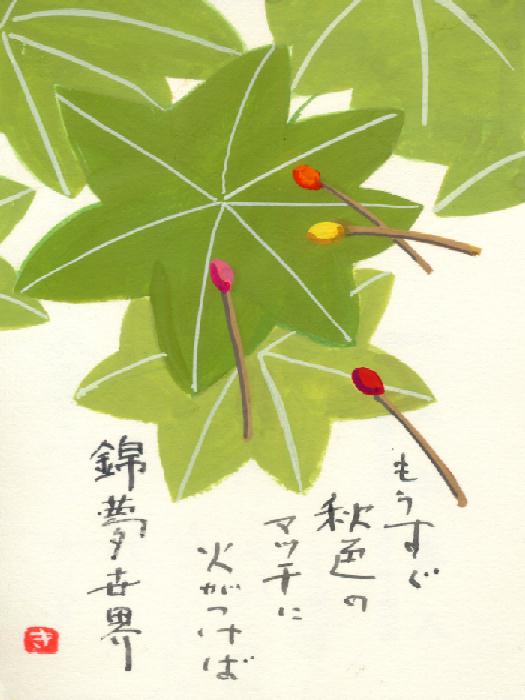 もうすぐ
秋色の
マッチに
火がつけば
錦夢世界
き